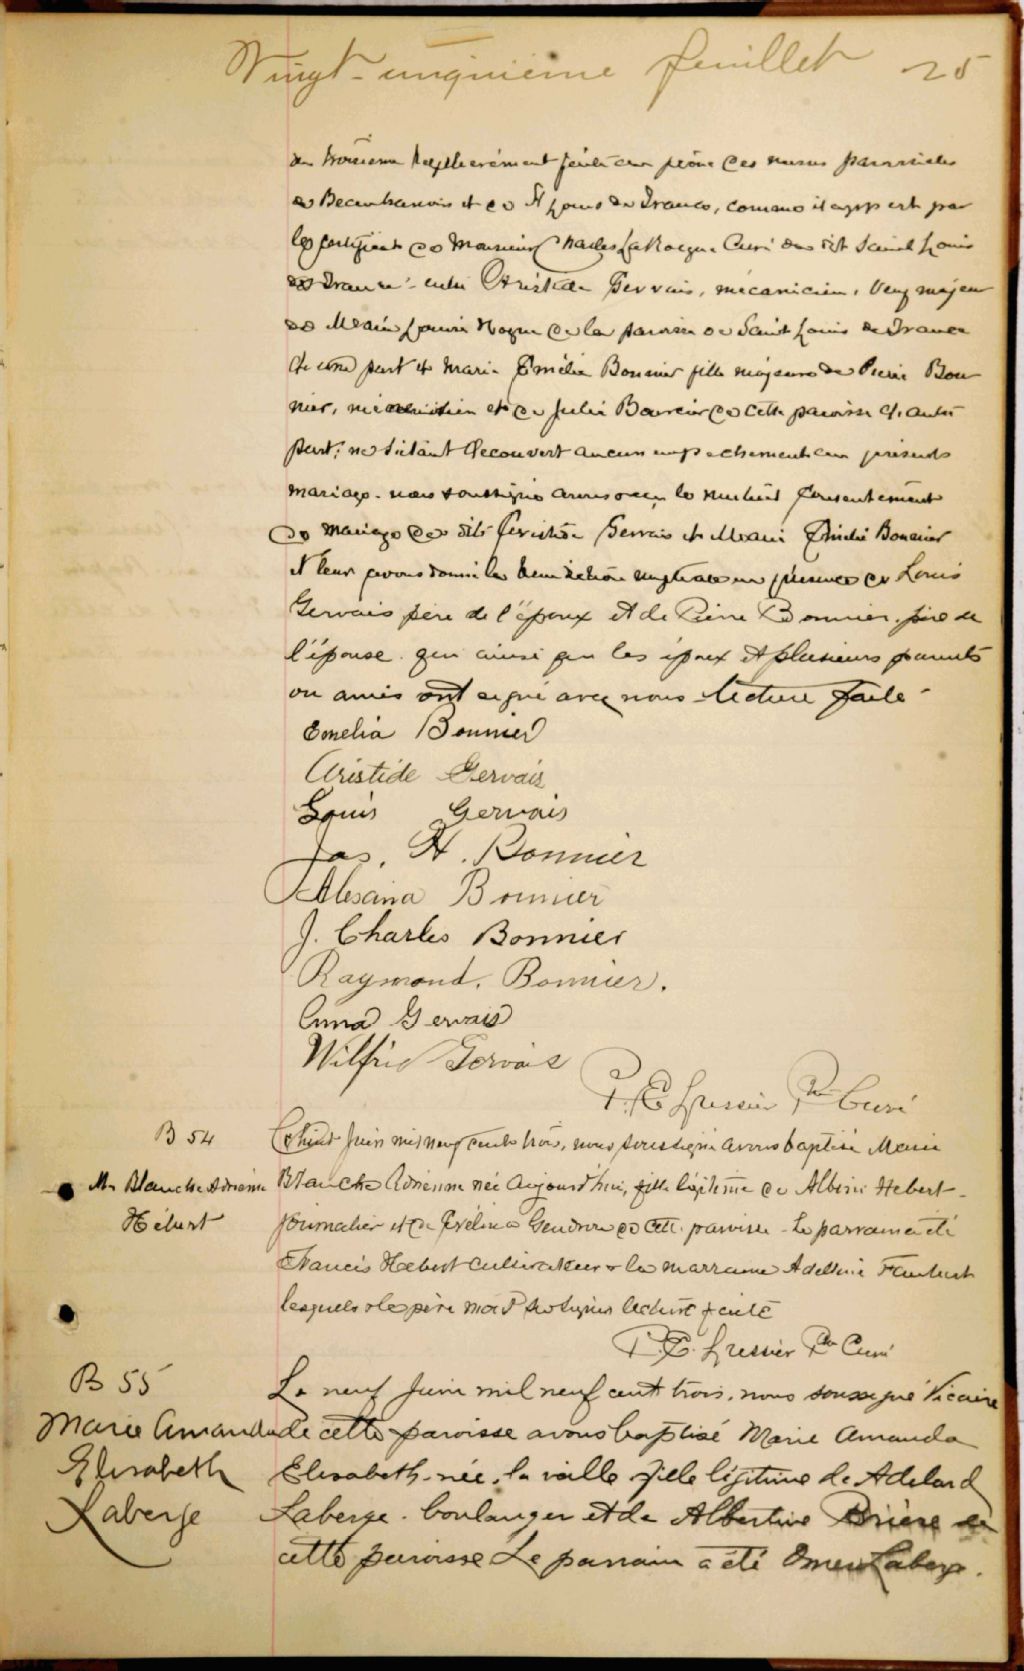 Vingt-cinquième feuillet 25
de Beauharnois et de St Louis de France, comme il appert par
le certificat de Monsieur Charles LaRocque Curé du dit Saint Louis
de France entre Aristide Gervais, mécanicien, veuf majeur
de Marie Louise de la paroisse de Saint Louis de France
d'une part & Marie Emélia Bonnier fille majeure de Pierre Bon
nier, et de Julie Boursier de cette paroisse d'autre
part; ne s'étant découvert aucun empêchement au présent
mariage. nous soussigné avons reçu le mutuel consentement
de mariage des dits Aristide Gervais et Marie Emélie Bonnier
et leur avons donné la bénédiction nuptiale en présence de Louis
Gervais père de l'époux et de Pierre Bonnier. père de
l'épouse. qui ainsi que les époux et plusieurs parents
ou amis ont signé avec nous lecture faite
Emelia Bonnier
Aristide Gervais
Louis Gervais
Jos. H. Bonnier
Alexina Bonnier
J. Charles Bonnier
Raymond. Bonnier.
Anna Gervais
Wilfrid Gervais
P. E. Lussier Ptre Curé
B 54
M. Blanche Adrienne
Hébert
Le huit Juin mil neuf cent trois, nous soussigné avons baptisé Marie
Blanche Adrienne née aujourd'hui, fille légitime de Albini Hebert
journalier et de Gendron de cette paroisse. Le parrain a été
Francis Hebert cultivateur & la marraine
lesquels & le père n'ont su signer lecture faite
P. E. Lussier Ptre Curé
B 55
Marie Amanda
Elisabeth
Laberge
Le neuf Juin mil neuf cent trois. nous soussigné Vicaire
de cette paroisse avons baptisé Marie Amanda
Elisabeth née la veille fille légitime de Adelard
Laberge. boulanger et de Albertine Brière de
cette paroisse Le parrain a été Omer Laberge.